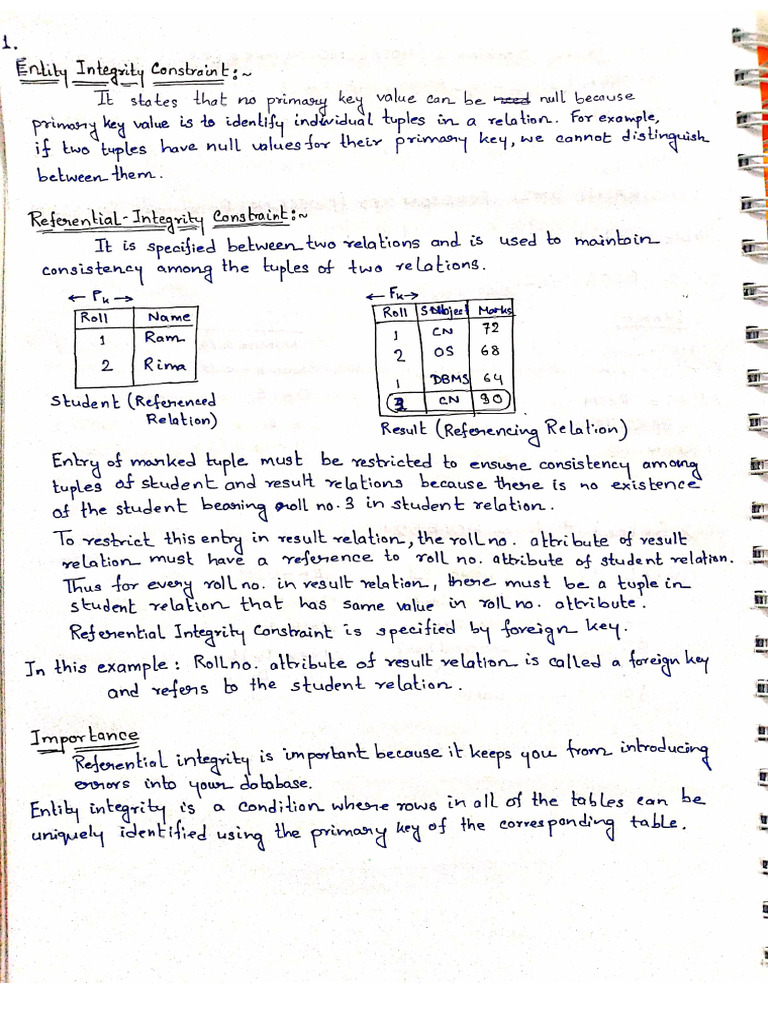 1.
Entity Integrity Constraint:~
It states that no primary key value can be need null because
primary key value is to identify individual tuples in a relation. For example,
if two tuples have null values for their primary key, we cannot distinguish
between them.
Referential-Integrity Constraint:~
It is specified between two relations and is used to maintain
consistency among the tuples of two relations.
← Pk →
Roll Name
1 Ram
2 Rima
Student (Referenced
Relation)
← Fk →
Roll Subject Marks
1 CN 72
2 OS 68
1 DBMS 64
3 CN 90
Result (Referencing Relation)
Entry of marked tuple must be restricted to ensure consistency among
tuples of student and result relations because there is no existence
of the student bearing roll no. 3 in student relation.
To restrict this entry in result relation, the roll no. attribute of result
relation must have a reference to roll no. attribute of student relation.
Thus for every roll no. in result relation, there must be a tuple in
student relation that has same value in roll no. attribute.
Referential Integrity Constraint is specified by foreign key.
In this example: Roll no. attribute of result relation is called a foreign key
and refers to the student relation.
Importance
Referential integrity is important because it keeps you from introducing
errors into your database.
Entity integrity is a condition where rows in all of the tables can be
uniquely identified using the primary key of the corresponding table.